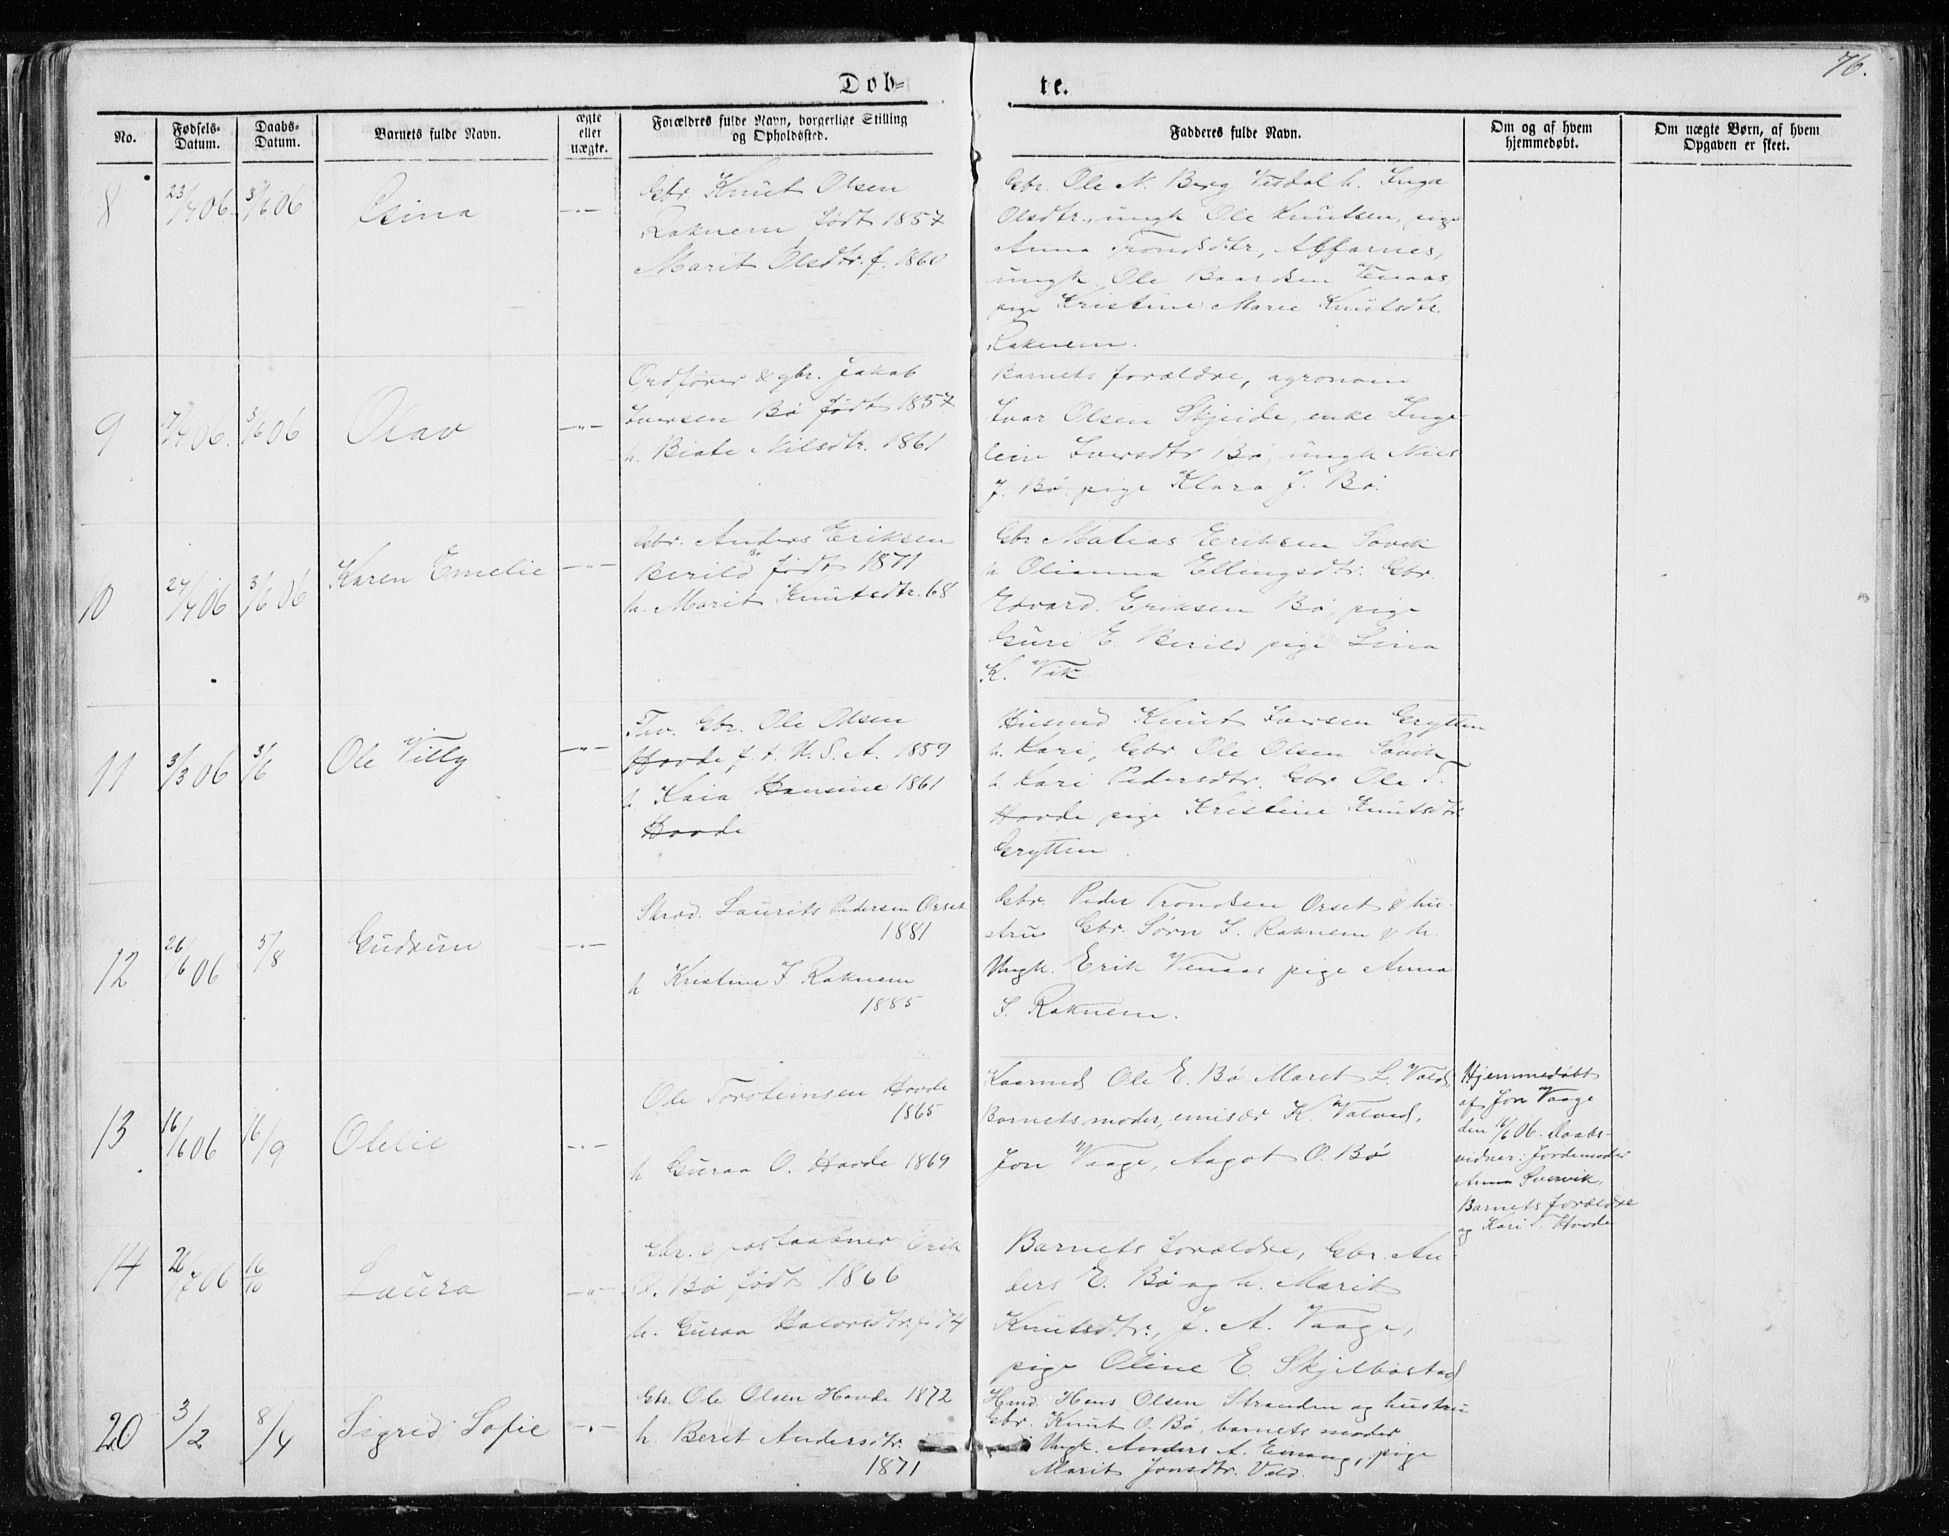 76.
Døb-
te.
No.
Fødsels-Datum.
Daabs-Datum.
Barnets fulde Navn.
ægte eller uægte.
Forældres fulde Navn, borgerlige Stilling og Opholdssted.
Fadderes fulde Navn.
Om og af hvem hjemmedøbt.
Om uægte Børn, af hvem Opgaven er skeet.
8 23/4 06. 3/6 06
Gbr. Knut Olsen
Raknem født 1857
Marit Olsdtr. f. 1860
Gbr. Ole N. Berg Visdal h. Inga
Olsdtr., ungk Ole Knutsen, pige
Anna Trondsdtr, Affarnes,
ungk Ole Baardsen Venaas
pige Kristine Marie Knutsdtr.
Raknem.
9 17/4 06. 3/6 06 Olav -"-
Ordfører & gbr. Jakob
Iversen Bø født 1857
h. Biate Nilsdtr. 1861
Barnets forældre, agronom
Ivar Olsen Skjeide, enke Inge-
lein Iversdtr Bø, ungk Nils
J. Bø, pige Klara J. Bø.
10 24/4 06 3/6 06 Karen Emelie -"-
Gbr. Anders Eriksen
Berild født 1871
h. Marit Knutsdtr. 68
Gbr Matias Eriksen Søvik
h Olianna Ellingsdtr. Gbr.
Edvard Eriksen Bø, pige
Guri E. Berild pige Lina
K. Vik
11 3/3 06 3/6 Ole Villy -"-
Gbr. Ole Olsen
Hovde, f. i U. S. A. 1859
h Kaia Hansine 1861
Hovde
Husmd Knut Iversen Grytten
h. Kari, Gbr Ole Olsen Søvik
h Kari Pedersdtr. Gbr Ole T.
Hovde pige Kristine Knutsdtr
Grytten.
12 26/6 06 5/8 Gudrun -"-
Skræd. Laurits Pedersen Orset
1881
h Kristine I Raknem
1885
Gbr. Peder Trondsen Orset & hu-
stru Gbr Sørn I. Raknem & h.
Ungk. Erik Venaas pige Anna
I. Raknem.
13 16/6 06 16/9 Otelie -"-
Ole Torsteinsen Hovde
1865
h Guraa O. Hovde 1869
Kaarmd Ole E. Bø Maret L. Vold,
Barnets moder, emisær K. Valved,
Jon Vaage, Aagot O. Bø
Hjemmedøbt
af Jon Vaage
den 16/6 06. Daabs-
vidner: Jordemoder
Anna
Barnets forældre
og Kari T. Hovde
14 26/7 06 16/10 Laura -"-
Gbr. & postaabner Erik
Bø født 1866
h. Guraa Halvorsdtr. f. 74
Barnets forældre, Gbr. An-
ders E. Bø og h. Marit
Knutsdtr, J. A. Vaage,
pige Oline E. Skjelbostad
20 3/2 8/4 Sigrid Sofie -"-
Gbr. Ole Olsen Hovde 1872
h. Beret Andersdtr.
1871
Hmd. Hans Olsen Stranden og hustru
Gbr. Knut O. Bø, barnets moder
Ungk. Anders A. pige
Marit Jonsdtr. Vold.